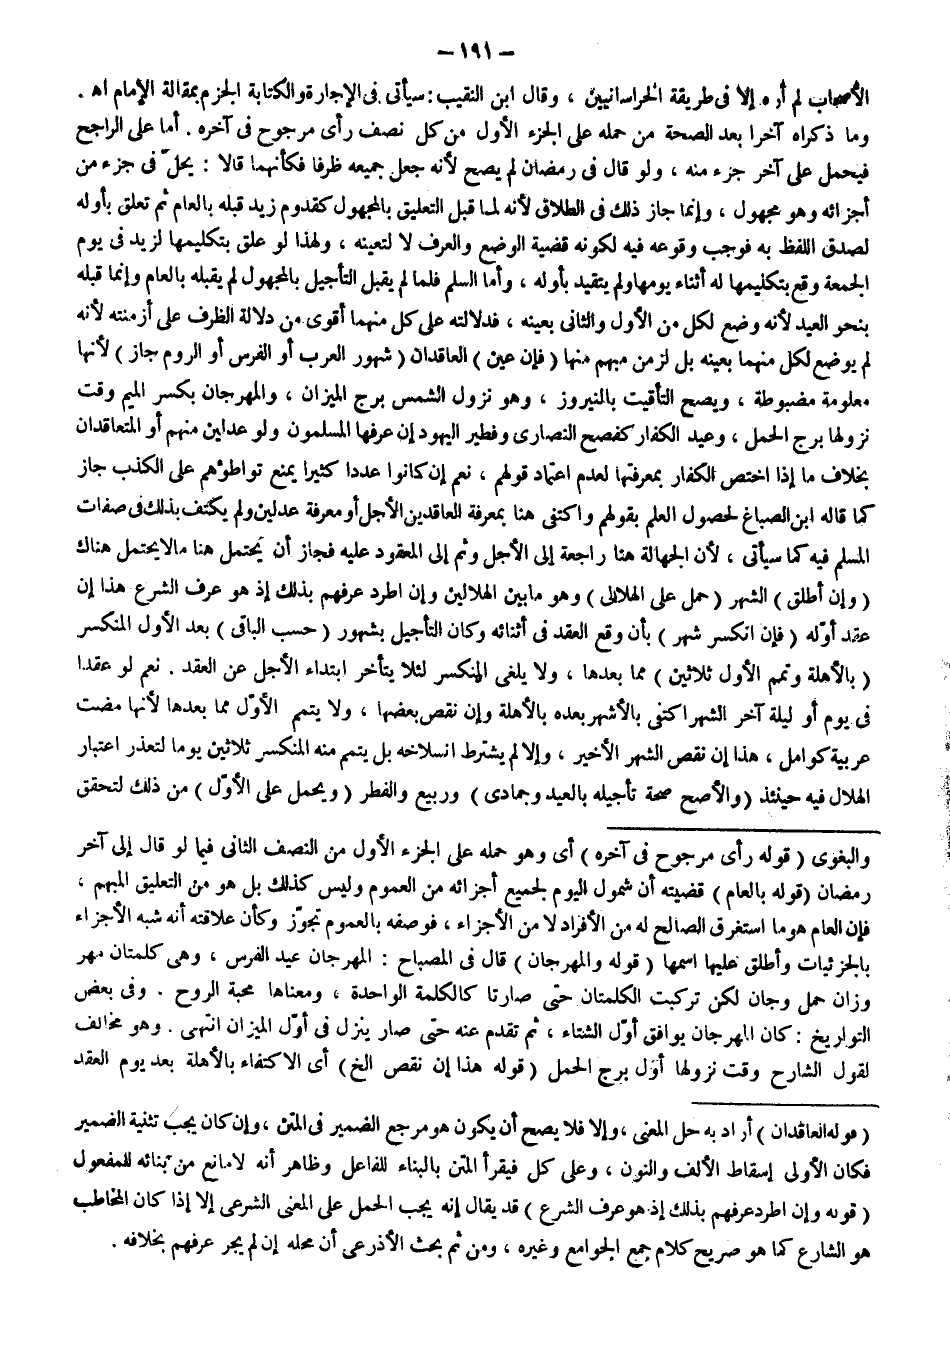 — ١٩١ —
الأصحاب لم أره إلا فى طريقة الخراسانيين ، وقال ابن النقيب : سيأتى فى الإجارة والكتابة الجزم بمقالة الإمام اه .
وما ذكراه آخرا بعد الصحة من حمله على الجزء الأول من كل نصف رأى مرجوح فى آخره . أما على الراجح
فيحمل على آخر جزء منه ، ولو قال فى رمضان لم يصح لأنه جعل جميعه ظرفا فكأنهما قالا : يحلّ فى جزء من
أجزائه وهو مجهول ، وإنما جاز ذلك فى الطلاق لأنه لما قبل التعليق بالمجهول كقدوم زيد قبله بالعام ثم تعلق بأوله
لصدق اللفظ به فوجب وقوعه فيه لكونه قضية الوضع والعرف لا لتعينه ، ولهذا لو علق بتكليمها لزيد فى يوم
الجمعة وقع بتكليمها له أثناء يومها ولم يتقيد بأوله ، وأما السلم فلما لم يقبل التأجيل بالمجهول لم يقبله بالعام وإنما قبله
بنحو العيد لأنه وضع لكل من الأول والثانى بعينه ، فدلالته على كل منهما أقوى من دلالة الظرف على أزمنته لأنه
لم يوضع لكل منهما بعينه بل لزمن مبهم منها ( فإن عين ) العاقدان ( شهور العرب أو الفرس أو الروم جاز ) لأنها
معلومة مضبوطة ، ويصح التأقيت بالنيروز ، وهو نزول الشمس برج الميزان ، والمهرجان بكسر الميم وقت
نزولها برج الحمل ، وعيد الكفار كفصح النصارى وفطير اليهود إن عرفها المسلمون ولو عدلين منهم أو المتعاقدان
بخلاف ما إذا اختص الكفار بمعرفتها لعدم اعتماد قولهم ، نعم إن كانوا عددا كثيرا يمنع تواطؤهم على الكذب جاز
كما قاله ابن الصباغ لحصول العلم بقولهم واكتفى هنا بمعرفة العاقدين الأجل أو معرفة عدلين ولم يكتف بذلك فى صفات
المسلم فيه كما سيأتى ، لأن الجهالة هنا راجعة إلى الأجل وثم إلى المعقود عليه فجاز أن يحتمل هنا مالا يحتمل هناك
( وإن أطلق ) الشهر ( حمل على الهلالى ) وهو مابين الهلالين وإن اطرد عرفهم بذلك إذ هو عرف الشرع هذا إن
عقد أوّله ( فإن انكسر شهر ) بأن وقع العقد فى أثنائه وكان التأجيل بشهور ( حسب الباقى ) بعد الأول المنكسر
( بالأهلة وتمم الأول ثلاثين ) مما بعدها ، ولا يلغى المنكسر لئلا يتأخر ابتداء الأجل عن العقد . نعم لو عقدا
فى يوم أو ليلة آخر الشهر اكتفى بالأشهر بعده بالأهلة وإن نقص بعضها ، ولا يتمم الأوّل مما بعدها لأنها مضت
عربية كوامل ، هذا إن نقص الشهر الأخير ، وإلا لم يشترط انسلاخه بل يتمم منه المنكسر ثلاثين يوما لتعذر اعتبار
الهلال فيه حينئذ ( والأصح صحة تأجيله بالعيد وجمادى ) وربيع والفطر ( ويحمل على الأوّل ) من ذلك لتحقق
والبغوى ( قوله رأى مرجوح فى آخره ) أى وهو حمله على الجزء الأول من النصف الثانى فيما لو قال إلى آخر
رمضان ( قوله بالعام ) قضيته أن شمول اليوم لجميع أجزائه من العموم وليس كذلك بل هو من التعليق المبهم ،
فإن العام هو ما استغرق الصالح له من الأفراد لا من الأجزاء ، فوصفه بالعموم تجوّز وكأن علاقته أنه شبه الأجزاء
بالجزئيات وأطلق عليها اسمها ( قوله والمهرجان ) قال فى المصباح : المهرجان عيد الفرس ، وهى كلمتان مهر
وزان حمل وجان لكن تركبت الكلمتان حتى صارتا كالكلمة الواحدة ، ومعناها محبة الروح . وفى بعض
التواريخ : كان المهرجان يوافق أوّل الشتاء ، ثم تقدم عنه حتى صار ينزل فى أوّل الميزان انتهى . وهو مخالف
لقول الشارح وقت نزولها أول برج الحمل ( قوله هذا إن نقص الخ ) أى الاكتفاء بالأهلة بعد يوم العقد
( قوله العاقدان ) أراد به حل المعنى ، وإلا فلا يصح أن يكون هو مرجع الضمير فى المتن ، وإن كان يجب تثنية الضمير
فكان الأولى إسقاط الألف والنون ، وعلى كل فيقرأ المتن بالبناء للفاعل وظاهر أنه لا مانع من بنائه للمفعول
( قوله وإن اطرد عرفهم بذلك إذ هو عرف الشرع ) قد يقال إنه يجب الحمل على المعنى الشرعى إلا إذا كان المخاطب
هو الشارع كما هو صريح كلام جمع الجوامع وغيره ، ومن ثم بحث الأذرعى أن محله إن لم يجر عرفهم بخلافه .